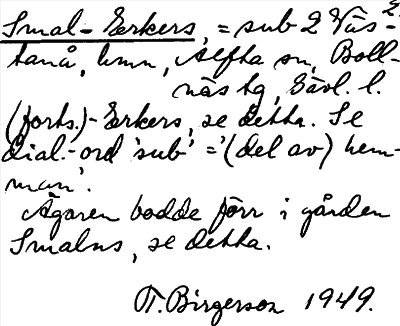 Smal-Erkers, = sub 2 Väs-
tanå, hmn, Alfta sn, Boll-
näs tg, Gävl. l.
(forts.)-Erkers, se detta. Se
dial.-ord 'sub' = '(del av) hem-
man'.
Ägaren bodde förr i gården
Smalns, se detta.
T. Birgerson 1949.